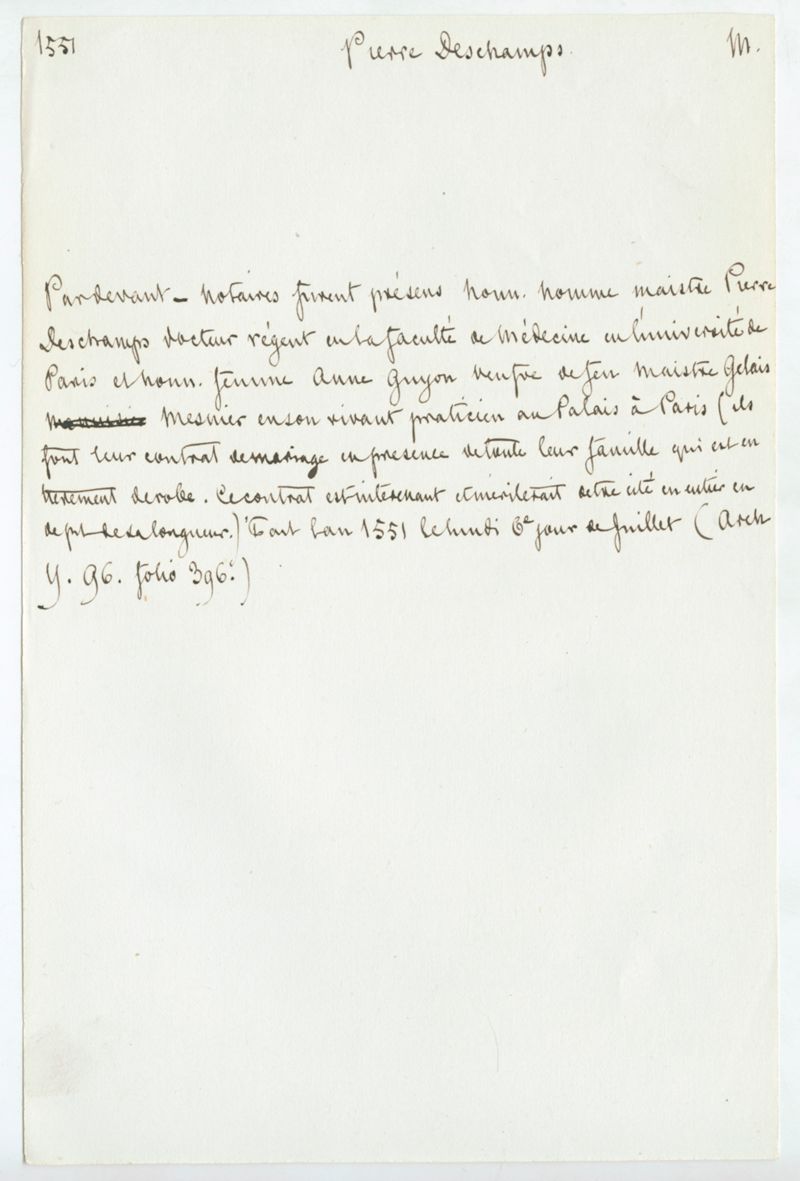 1551 Pierre Deschamps. M.
Pardevant – notaires furent présens honn. homme maistre Pierre
Deschamps docteur régent en la faculté de Médecine en l'université de
Paris et honn. femme Anne Guyon veufve de feu Maistre Gelais
Mesnier en son vivant praticien au Palais à Paris (ils
font leur contrat de mariage en présence de toute leur famille qui est en
tièrement de robe. Ce contrat est intéressant et mériterait detre cité en entier en
depit de sa longueur.) Fait l'an 1551 le lundi 6e jour de Juillet (Arch
Y. 96. folio 396.)